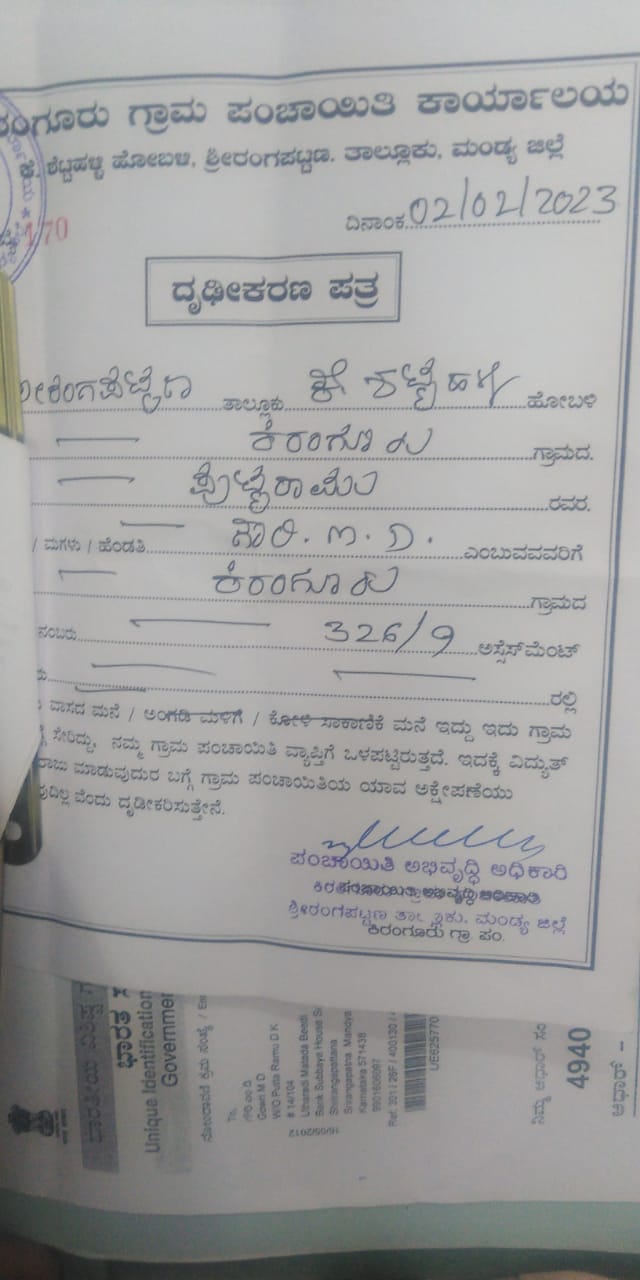 ರಂಗೂರು ಗ್ರಾಮ ಪಂಚಾಯಿತಿ ಕಾರ್ಯಾಲಯ
ಕೆ. ಶೆಟ್ಟಹಳ್ಳಿ ಹೋಬಳಿ, ಶ್ರೀರಂಗಪಟ್ಟಣ. ತಾಲ್ಲೂಕು, ಮಂಡ್ಯ ಜಿಲ್ಲೆ
ದಿನಾಂಕ 02/02/2023
170
ದೃಢೀಕರಣ ಪತ್ರ
ತಾಲ್ಲೂಕು ಕೆ ಶೆಟ್ಟಿಹಳ್ಳಿ ಹೋಬಳಿ
ಕಿರಂಗೂರು ಗ್ರಾಮದ.
ಪುಟ್ಟರಾಮು ರವರ.
/ ಮಗಳು / ಹೆಂಡತಿ ಗೌರಿ. M. D. ಎಂಬುವವವರಿಗೆ
ಕಿರಂಗೂರು ಗ್ರಾಮದ
ನಂಬರು 326/9 ಅಸ್ಸೆಸ್‌ಮೆಂಟ್
ರಲ್ಲಿ
ವಾಸದ ಮನೆ / ಅಂಗಡಿ ಮಳಿಗೆ / ಕೋಳಿ ಸಾಕಾಣಿಕೆ ಮನೆ ಇದ್ದು ಇದು ಗ್ರಾಮ
ಸೇರಿದ್ದು, ನಮ್ಮ ಗ್ರಾಮ ಪಂಚಾಯಿತಿ ವ್ಯಾಪ್ತಿಗೆ ಒಳಪಟ್ಟಿರುತ್ತದೆ. ಇದಕ್ಕೆ ವಿದ್ಯುತ್
ರಾಜು ಮಾಡುವುದುರ ಬಗ್ಗೆ ಗ್ರಾಮ ಪಂಚಾಯಿತಿಯ ಯಾವ ಅಕ್ಷೇಪಣೆಯು
ವುದಿಲ್ಲವೆಂದು ದೃಡೀಕರಿಸುತ್ತೇನೆ.
ಪಂಚಾಯಿತಿ ಅಭಿವೃದ್ಧಿ ಅಧಿಕಾರಿ
ಪಂಚಾಯಿತಿ ಅಭಿವೃದ್ಧಿ ಅಧಿಕಾರಿ
ಶ್ರೀರಂಗಪಟ್ಟಣ ತಾಲ್ಲೂಕು, ಮಂಡ್ಯ ಜಿಲ್ಲೆ
ಕಿರಂಗೂರು ಗ್ರಾ ಪಂ.
ಭಾರತ ಸ
Unique Identification
Government
To,
Gowri M D
W/O Putta Ramu D K
# 14/104
Utharadi Matada Beedi
Bank Subbaya House
Shrirangapattana
Srirangapatna Mandya
Karnataka 571438
16/05/2012
UE625770
ನಿಮ್ಮ ಆಧಾರ್ ಸಂ
4940
ಆಧಾರ್ -